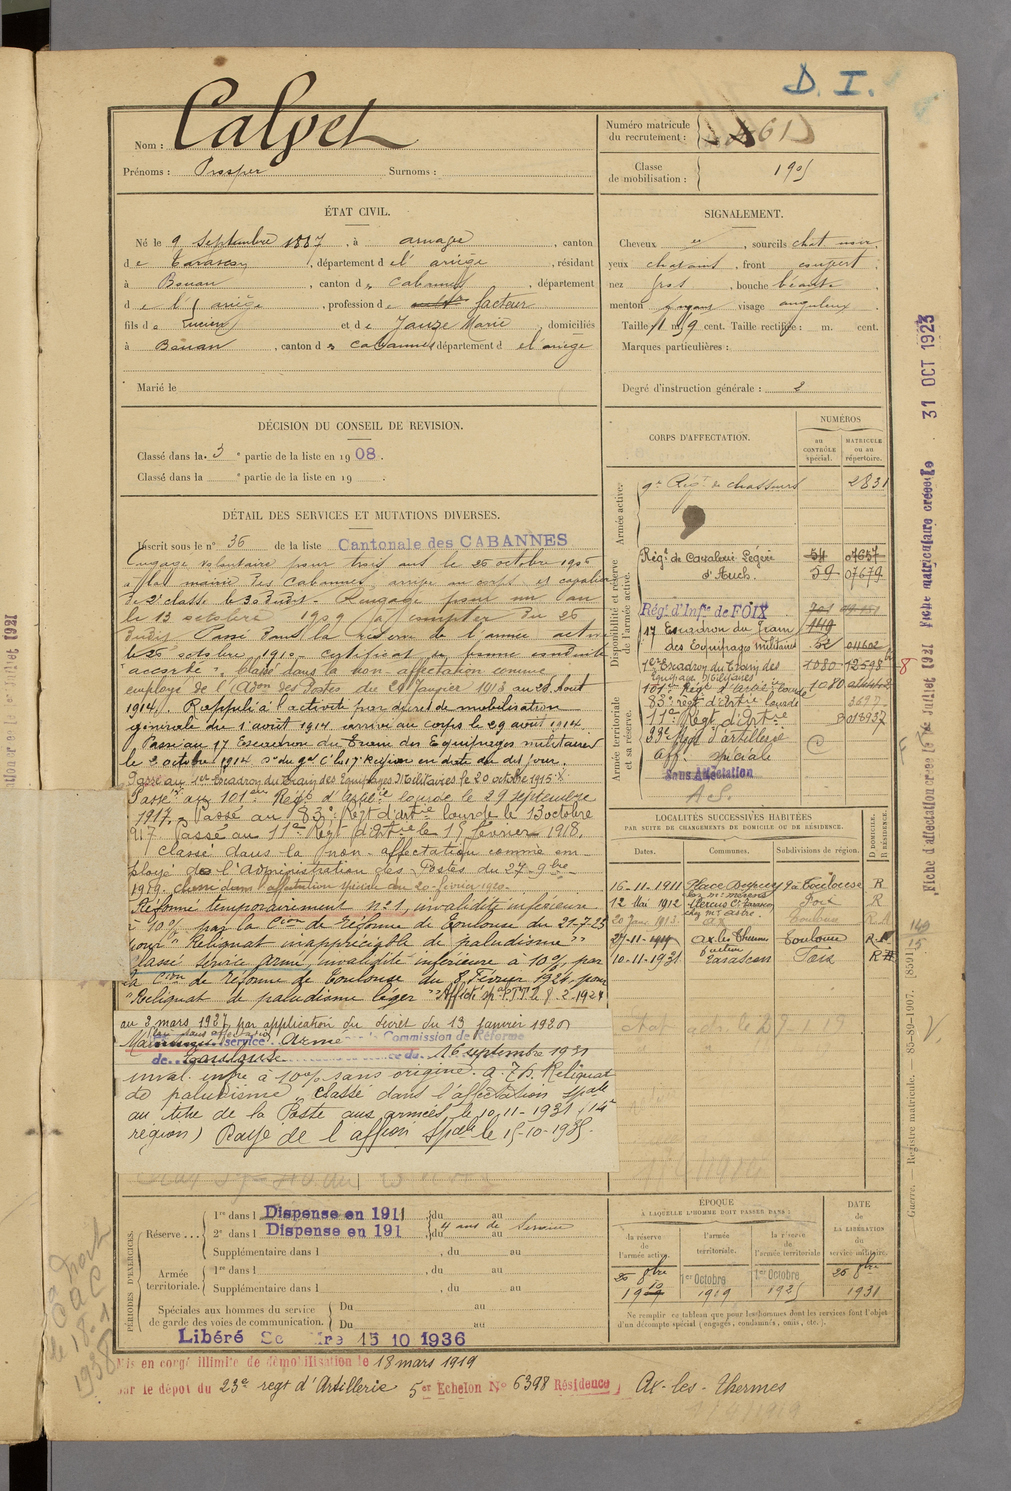 D. I.
Nom : Calvet
Prénoms : Prosper Surnoms :
Numéro matricule du recrutement : 61
Classe de mobilisation : 1905
ÉTAT CIVIL.
Né le 9 Septembre 1887, à arnaga, canton
de Tarascon, département de l'ariège, résidant
à Bouan, canton de Cabannes, département
de l'ariège, profession de facteur
fils de Lucien et de Jauze Marie, domiciliés
à Bouan, canton de Cabannes département de l'ariège
Marié le
SIGNALEMENT.
Cheveux , sourcils chat noir.
yeux chatains, front couvert.
nez gros, bouche béante
menton visage anguleux.
Taille 1 m. 59 cent. Taille rectifiée : m. cent.
Marques particulières :
Degré d'instruction générale : 2
DÉCISION DU CONSEIL DE REVISION.
Classé dans la 3e partie de la liste en 1908.
Classé dans la e partie de la liste en 19 .
DÉTAIL DES SERVICES ET MUTATIONS DIVERSES.
Inscrit sous le n° 36 de la liste Cantonale des CABANNES
Engagé volontaire pour trois ans le 26 octobre 1906
à la mairie des Cabannes, arrivé au corps et cavalier
de 2e classe le 30 dudit. Rengagé pour un an
le 13 octobre 1909 à compter du 26
dudit. Passé dans la réserve de l'armée active
le 26 octobre 1910. Certificat de bonne conduite
"accordé". Classé dans la non-affectation comme
employé de l'Adon des Postes du 20 Janvier 1913 au 28 Août
1914. Rappelé à l'activité par décret de mobilisation
générale du 1 août 1914 arrivé au corps le 29 août 1914
Passé au 17 Escadron du Train des Equipages militaires
le 2 octobre 1914 On du gal Ct la 17e Région en date du dit jour.
Passé au 1er Escadron du Train des Equipages Militaires le 20 octobre 1915
Passé au 101eme Régt d'artie lourde le 29 septembre
1917. Passé au 83e Régt d'artie lourde le 13 octobre
917 Passé au 11e Régt d'artie le 15 février 1918.
Classé dans la non-affectation comme em-
ployé de l'Administration des Postes du 27-9bre
1919. Classé dans l'affectation spéciale du 20 février 1920.
Réformé temporairement n°1, invalidité inférieure
à 10% par la Cion de Réforme de Toulouse du 21-7-23
pour "Reliquat inappréciable de paludisme"
Classé service armé, invalidité inférieure à 10% par
la Cion de réforme de Toulouse du 8 Février 1924 pour
"Reliquat de paludisme léger" Affecté sp. P.T.T. le 8-2-1924
au 2 mars 1927 par application du décret du 13 Janvier 1920
Maintenu service Armé Commission de Réforme
de Toulouse du 16 septembre 1931
inval. infre à 10% sans origine. a.7b. Reliquat
de paludisme. Classé dans l'affectation spale
au titre de la Poste aux armées le 10-11-1931 (14e
région) Rayé de l'affion spale le 15-10-1935.
CORPS D'AFFECTATION.
NUMÉROS
au CONTRÔLE spécial.
MATRICULE ou au répertoire.
Armée active.
9e Régt de chasseurs 2831
Disponibilité et réserve de l'armée active.
Régt de Cavalerie Légère 54 07657
d'Auch. 59 07679
Régt d'Infie de FOIX
17 Escadron du Train 149
des Equipages militaires 52 01602
1er Escadron du Train des 1080 12598
Equipages Militaires
Armée territoriale et sa réserve.
101e Régt d'artie lourde 1080
83e regt d'artie lourde 3697
11e Régt d'artie 018937
23e Regt d'artillerie
aff. spéciale
Sans Affectation
A S.
LOCALITÉS SUCCESSIVES HABITÉES
PAR SUITE DE CHANGEMENTS DE DOMICILE OU DE RÉSIDENCE.
Dates. Communes. Subdivisions de région. D DOMICILE. R RÉSIDENCE.
16-11-1911 Place Dupuy 9a Toulouse R
12 Mai 1912 Mercus Ct Tarascon Foix R
chez Mr Astre
20 Janv 1913 ax Toulouse R
27-11-1919 Ax les Thermes Toulouse R
10-11-1931 Tarascon Foix R
PÉRIODES D'EXERCICES.
Réserve... 1re dans l Dispense en 1911, du au
2e dans l Dispense en 191 , du au 4 ans de Service
Supplémentaire dans l , du au
Armée territoriale. 1re dans l , du au
Supplémentaire dans l , du au
Spéciales aux hommes du service de garde des voies de communication. Du au
Du au
ÉPOQUE
À LAQUELLE L'HOMME DOIT PASSER DANS :
la réserve de l'armée active.
l'armée territoriale.
la réserve de l'armée territoriale
DATE de LA LIBÉRATION du service militaire.
26 8bre 1910
1er Octobre 1919
1er Octobre 1925
26 8bre 1931
Ne remplir ce tableau que pour les hommes dont les services font l'objet
d'un décompte spécial (engagés, condamnés, omis, etc.).
Libéré 15 10 1936
Mis en congé illimité de démobilisation le 18 mars 1919
par le dépôt du 23e regt d'Artillerie 5er Echelon No 6398 Résidence, Ax-les-Thermes
Fiche d'affectation créée le 1er Juillet 1921 Fiche matriculaire créée le 31 OCT 1923
Guerre. Registre matricule. 85-89-1907. [8501]
149
15
8